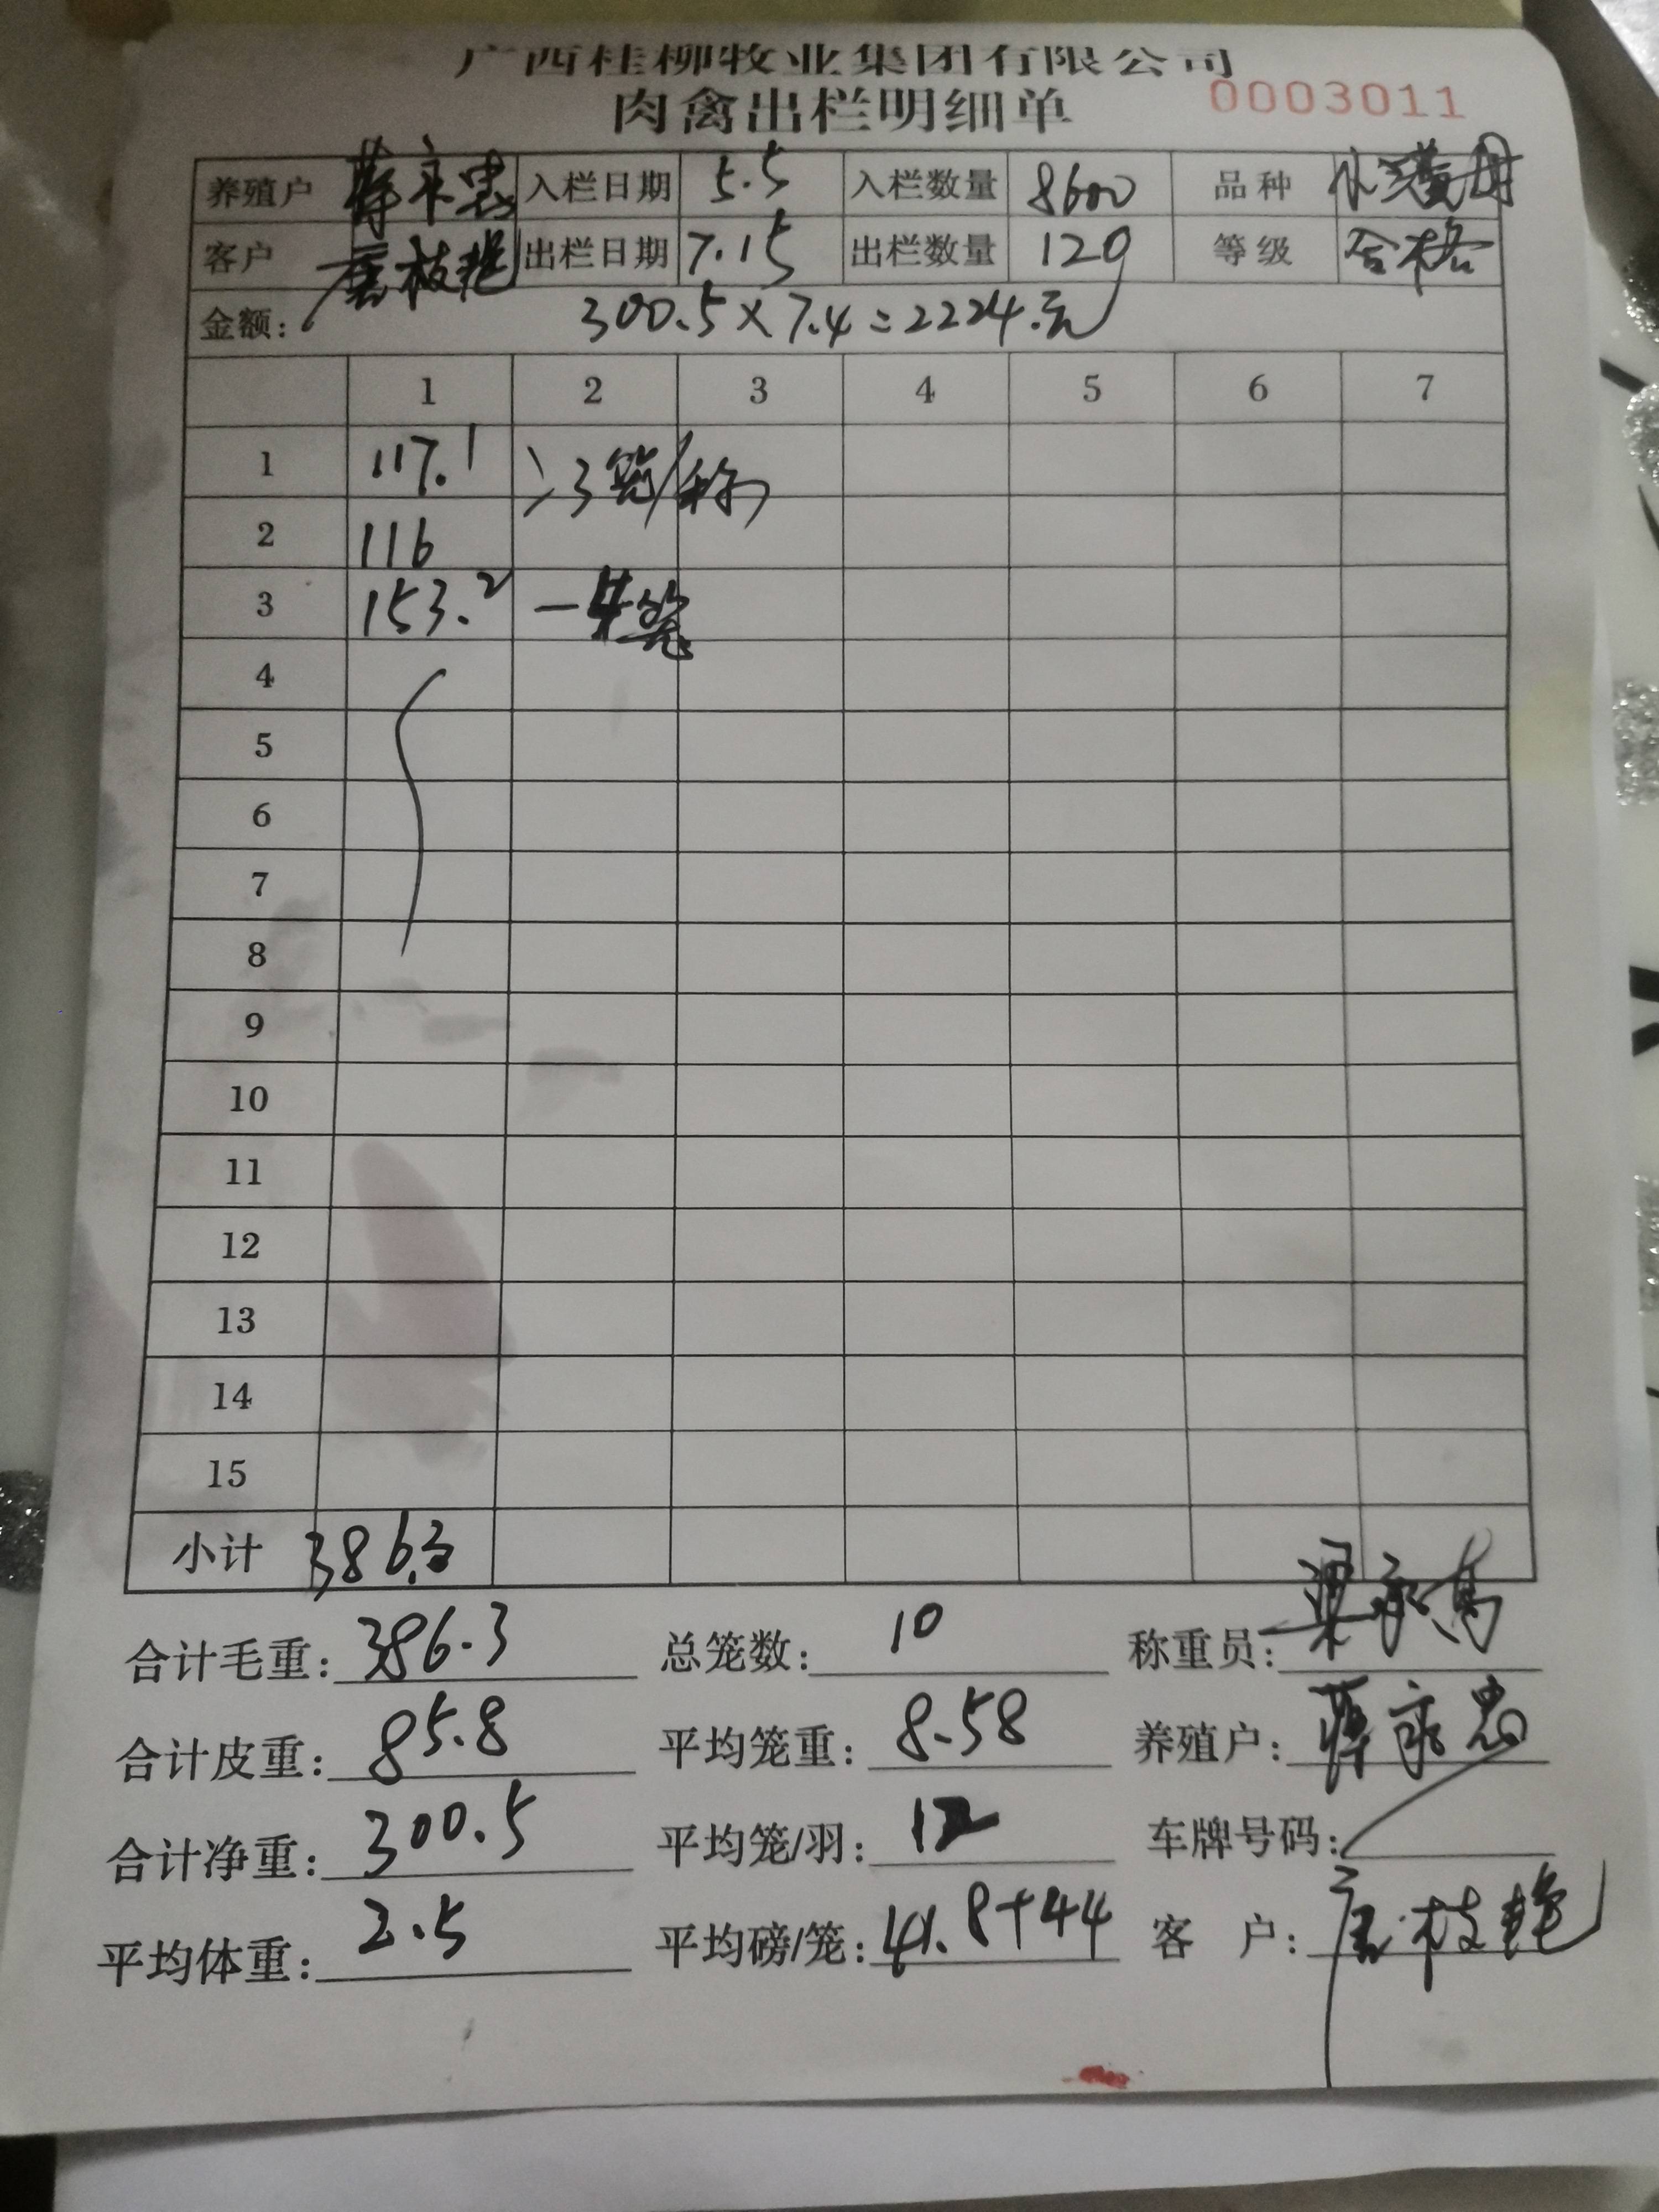 广西桂柳牧业集团有限公司
肉禽出栏明细单 0003011
养殖户 入栏日期 5.5 入栏数量 8600 品种
客户 唐枝艳 出栏日期 7.15 出栏数量 120 等级 合格
金额: 300.5×7.4=2224.元
1 2 3 4 5 6 7
1 117.1 3笼/称
2 116
3 153.2 一4笼
4
5
6
7
8
9
10
11
12
13
14
15
小计 386.3
合计毛重: 386.3 总笼数: 10 称重员:
合计皮重: 85.8 平均笼重: 8.58 养殖户:
合计净重: 300.5 平均笼/羽: 12 车牌号码:
平均体重: 2.5 平均磅/笼: 41.8+44 客户: 唐枝艳